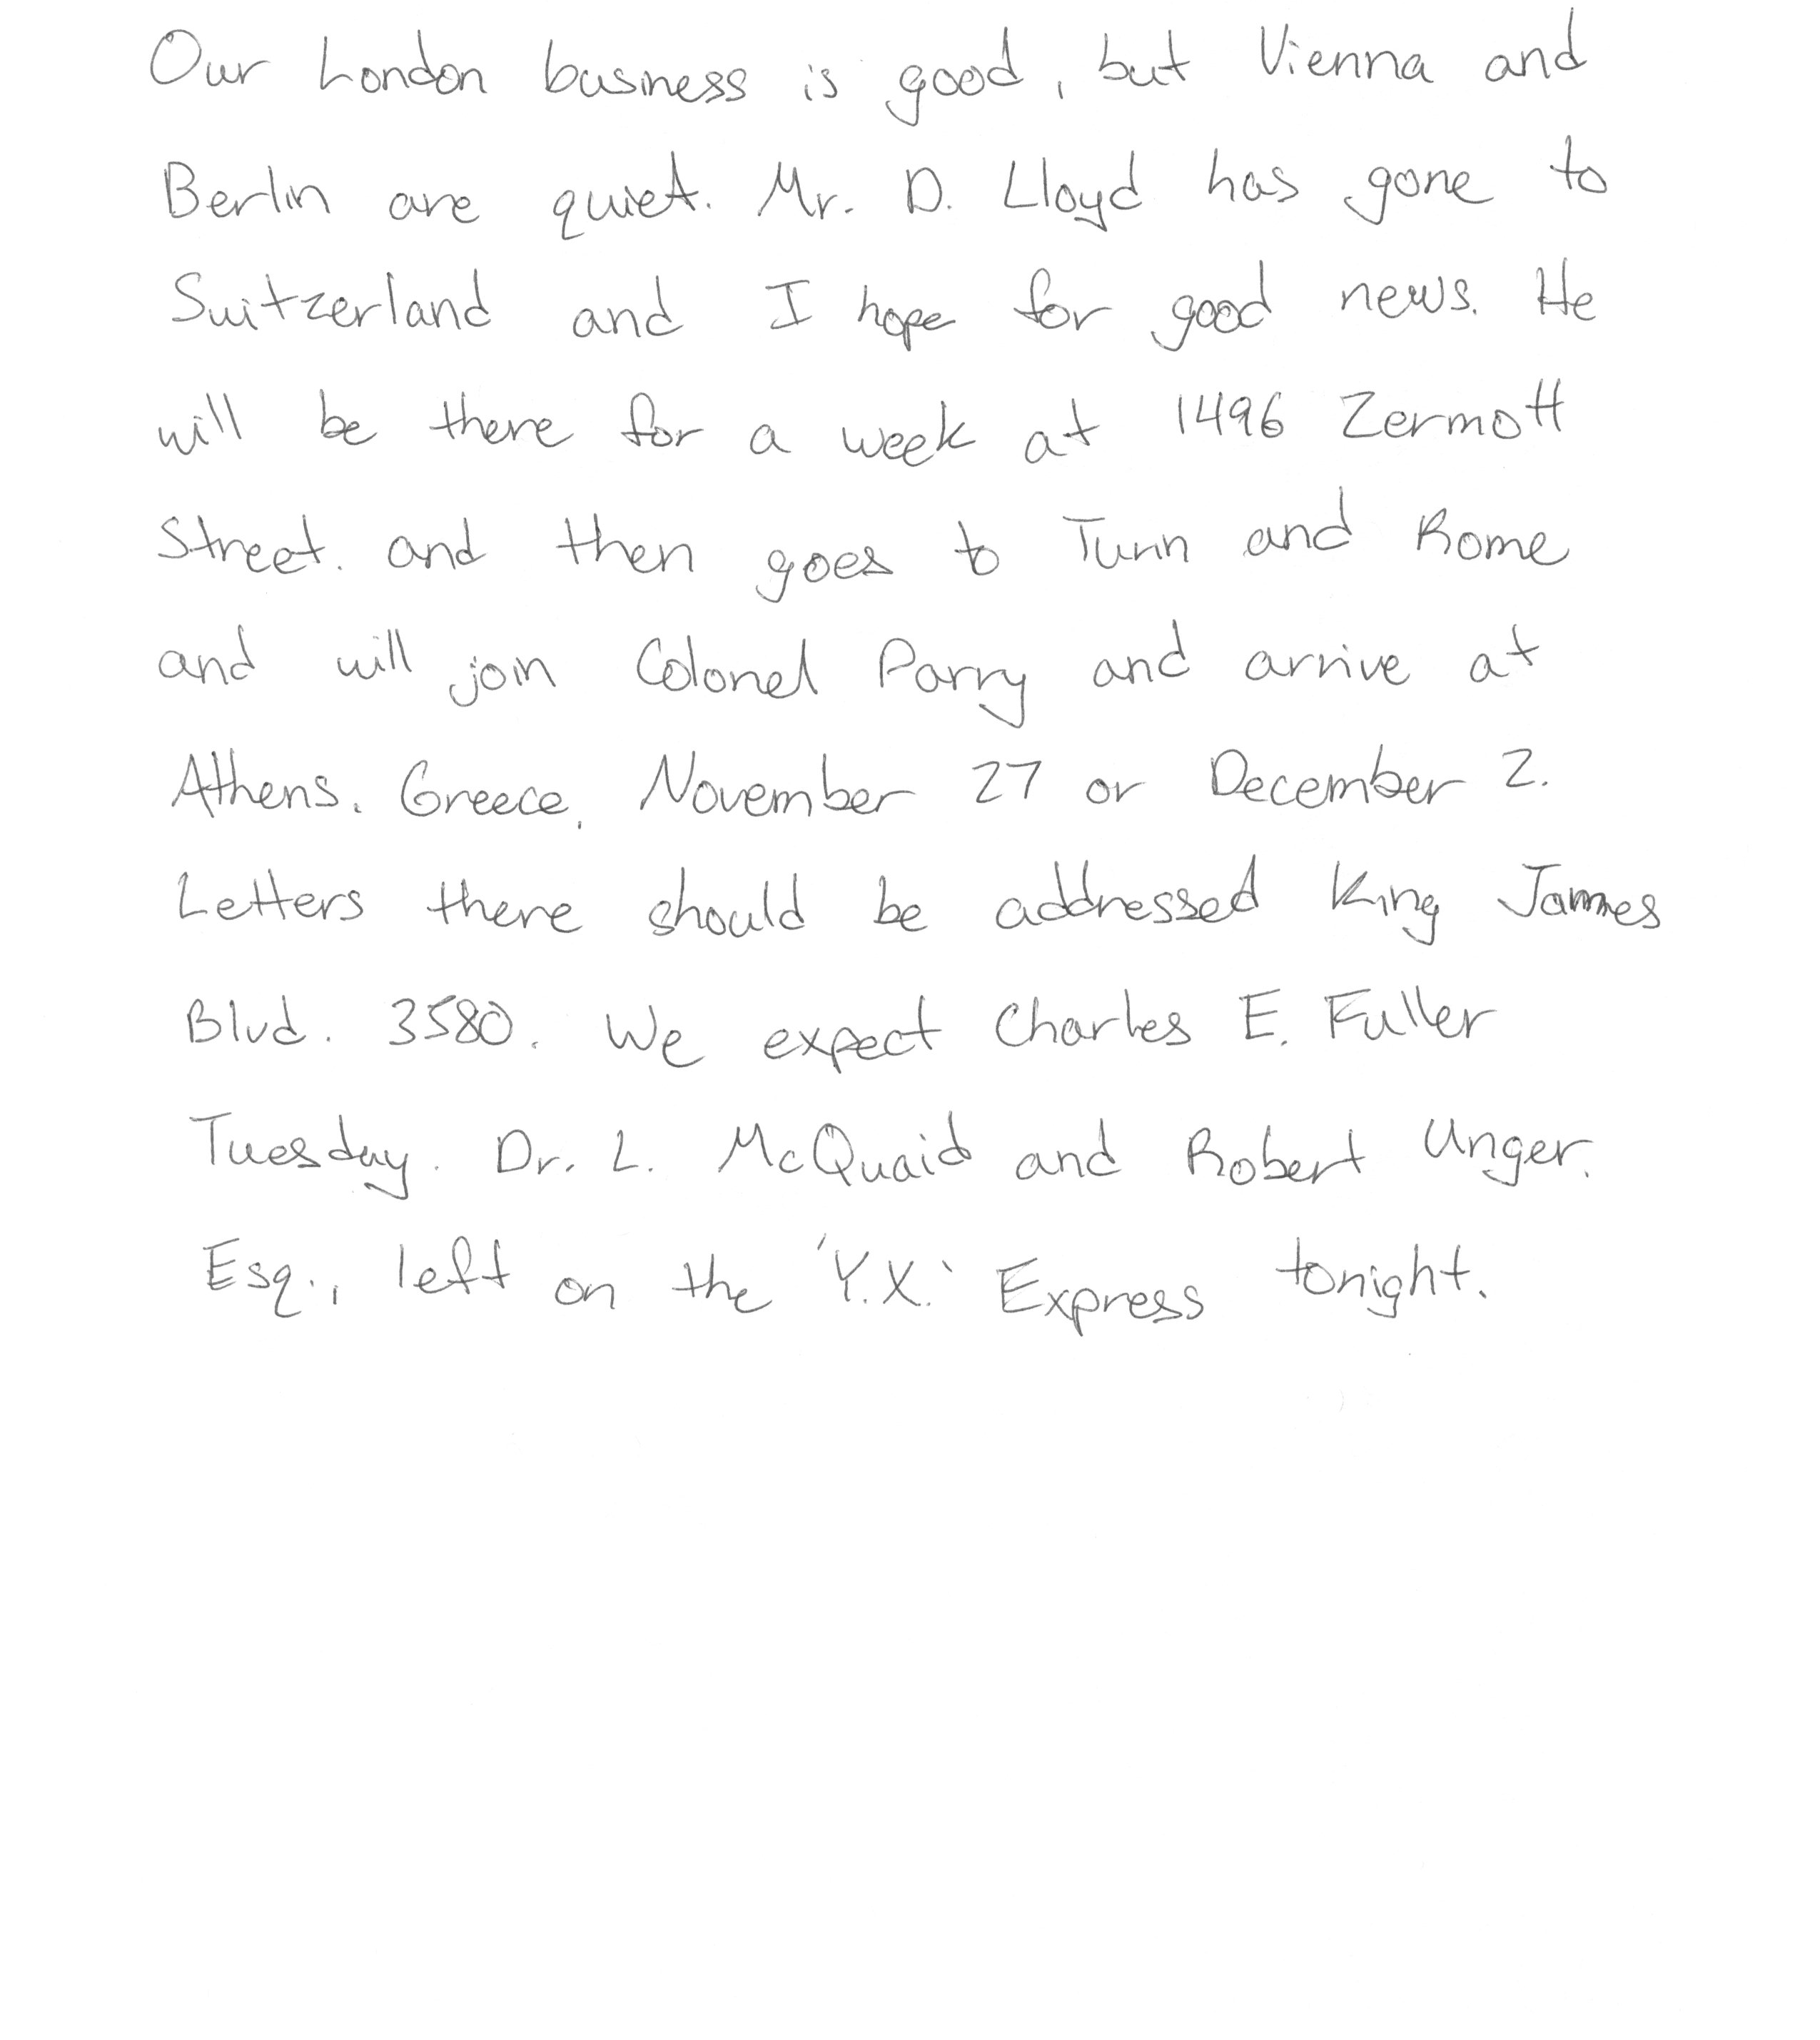 Our London business is good, but Vienna and
Berlin are quiet. Mr. D. Lloyd has gone to
Switzerland and I hope for good news. He
will be there for a week at 1496 Zermott
Street. and then goes to Turin and Rome
and will join Colonel Parry and arrive at
Athens. Greece, November 27 or December 2.
Letters there should be addressed King James
Blvd. 3580. We expect Charles E. Fuller
Tuesday. Dr. L. McQuaid and Robert Unger.
Esq., left on the 'Y.X.' Express tonight.